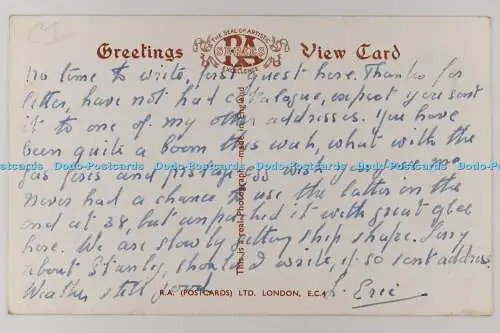 CI
THE SEAL OF ARTISTIC
EXCELLENCE
RA
SERIES
Greetings View Card
No time to write, just guest here. Thanks for
letter, have not had catalogue, expect you sent
it to one of my other addresses. You have
been quite a boom this week, what with the
gas fires and
never had a chance to use the latter in the
end at 38, but unpacked it with great glee
here. We are slowly getting ship shape. Sorry
about Stanley, should I write, if so send address.
Weather still good. Eric
This is a real Photograph - made in England
R.A. (POSTCARDS) LTD. LONDON, E.C.4
Dodo-Postcards Dodo-Postcards Dodo-Postcards Dodo-Postcards Dodo-Postcards